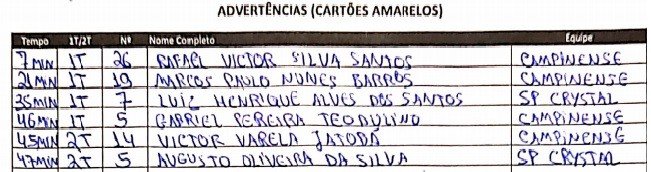 ADVERTÊNCIAS (CARTÕES AMARELOS)
Tempo 1T/2T Nº Nome Completo Equipe
7MIN 1T 26 RAFAEL VICTOR SILVA SANTOS CAMPINENSE
21MIN 1T 19 MARCOS PAULO NUNES BARROS CAMPINENSE
35MIN 1T 7 LUIZ HENRIQUE ALVES DOS SANTOS SP CRYSTAL
46MIN 1T 5 GABRIEL PEREIRA TEODULINO CAMPINENSE
45MIN 2T 14 VICTOR VARELA JATOBÁ CAMPINENSE
47MIN 2T 5 AUGUSTO OLIVEIRA DA SILVA SP CRYSTAL